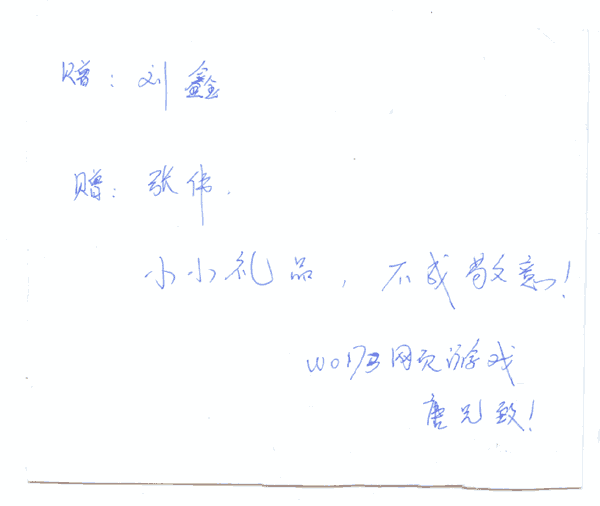 赠：刘鑫
赠：张伟.
小小礼品，不成敬意！
wo173网页游戏
唐兄致！